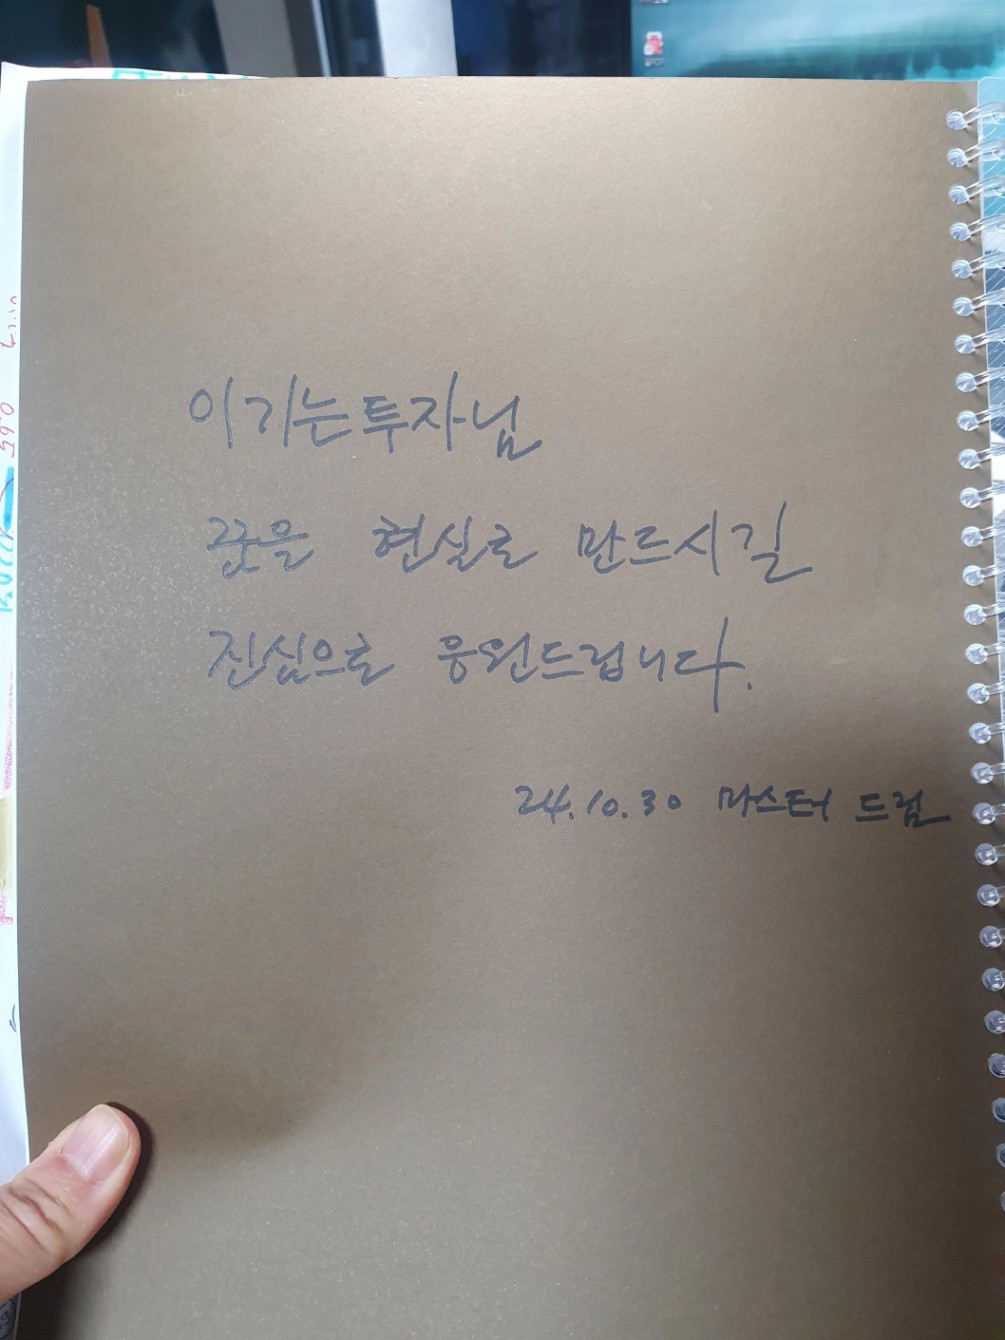 이기는투자님
꿈을 현실로 만드시길
진심으로 응원드립니다.
24.10.30 마스터 드림